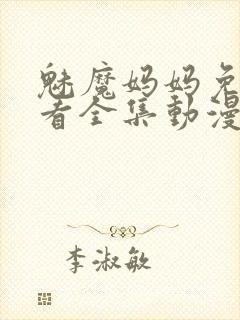 魅魔妈妈免
看全集動漫
李淑敏